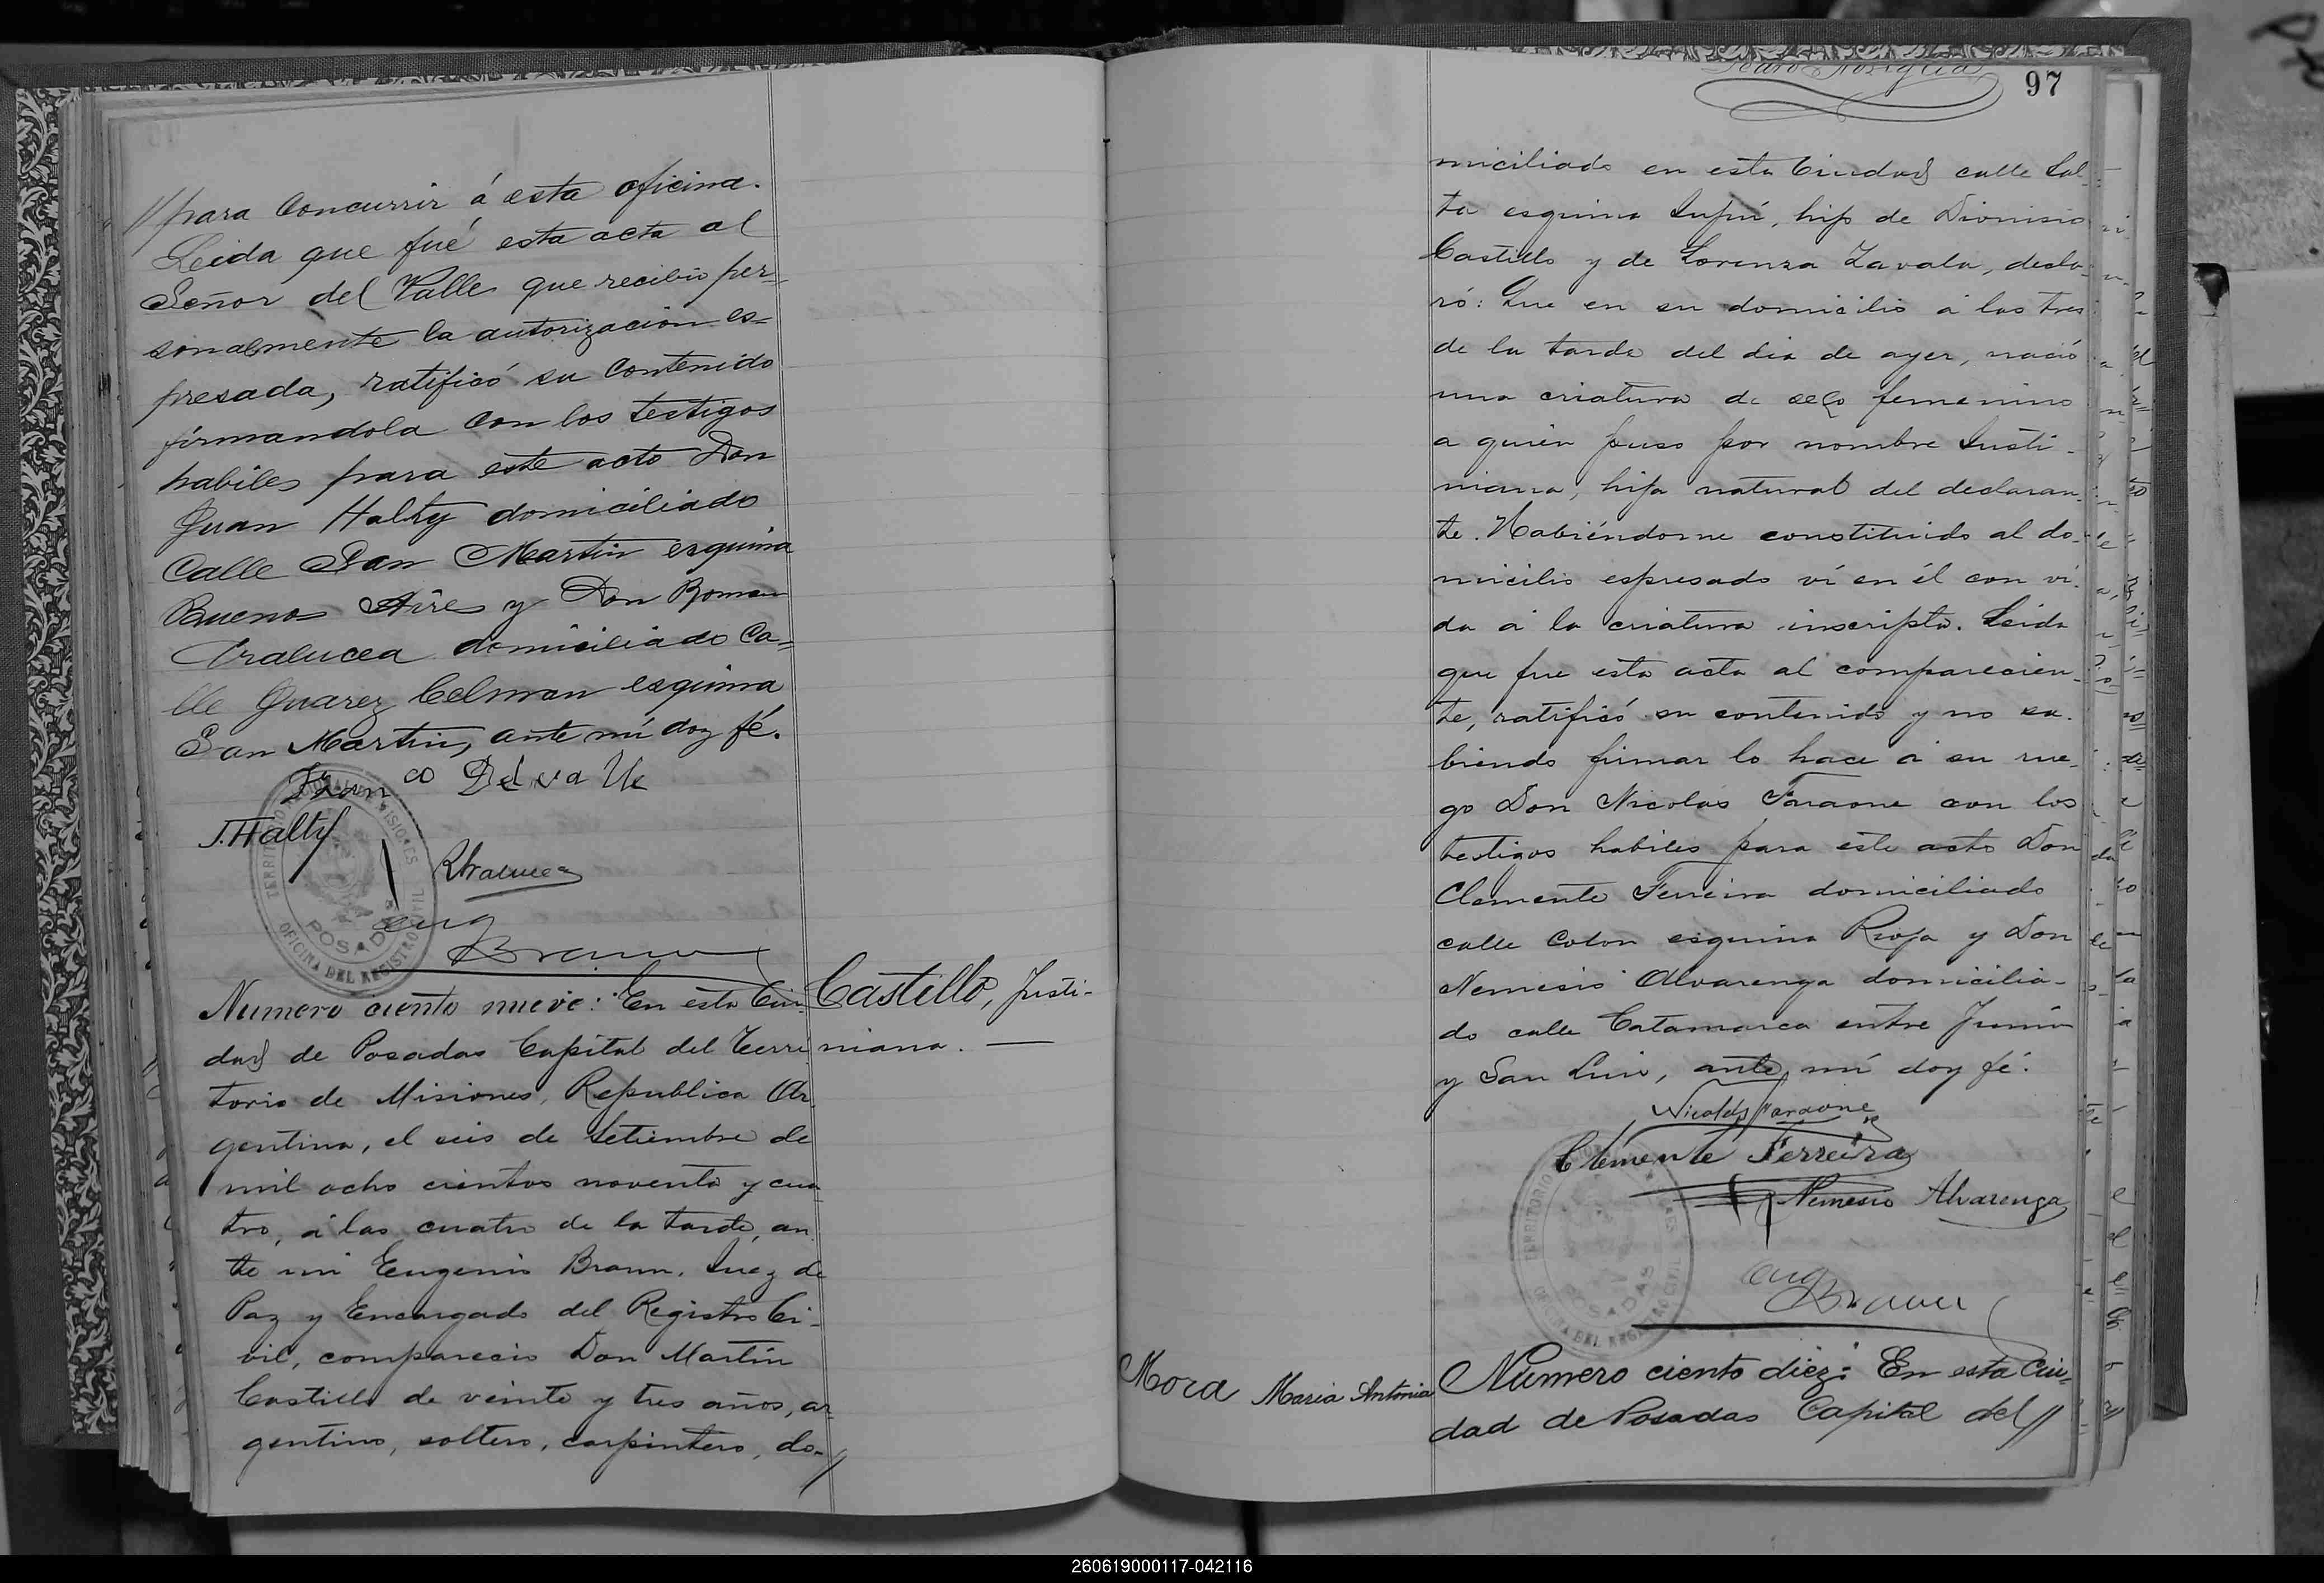 //para Concurrir á esta oficina.
Leida que fué esta acta al
Señor del Valle que recibió per=
sonalmente la autorización es=
presada, ratificó su Contenido
firmandola Con los testigos
habiles para este acto Don
Juan Halty domiciliado
Calle San Martin esquina
Buenos Aires y Don Roman
Iralucea domiciliado Ca=
lle Juarez Celman esquina
San Martin, ante mí doy fé.
Franco Del valle
J. Halty
RIralucea
TERRITORIO NACIONAL DE MISIONES
POSADAS
OFICINA DEL REGISTRO CIVIL
Eug
Braun
Numero ciento nueve: En esta Ciu-
Castillo, Justi-
dad de Posadas Capital del Terri
niana. —
torio de Misiones, Republica Ar
gentina, el seis de Setiembre de
mil ocho cientos noventa y cua
tro, á las cuatro de la tarde, an
te mi Eugenio Braun, Juez de
Paz y Encargado del Registro Ci-
vil, comparecio Don Martin
Castillo de veinte y tres años, ar-
gentino, soltero, carpintero, do-//
97
miciliado en esta Ciudad calle Sal-
ta esquina Jujuí, hijo de Dionisio
Castillo y de Lorenza Zavala, decla-
ró: Que en su domicilio á las tres
de la tarde del dia de ayer, nació
una criatura de seqso femenino
a quien puso por nombre Justi-
niana, hija natural del declaran-
te. Habiéndome constituido al do-
micilio espresado ví en él con vi-
da á la criatura inscripta. Leida
que fue esta acta al comparecien-
te, ratificó su contenido y no sa-
biendo firmar lo hace á su rue-
go Don Nicolás Faraone con los
testigos habiles para este acto Don
Clemente Ferreira domiciliado
calle Colon esquina Rioja y Don
Nemesio Alvarenga domicilia-
do calle Catamarca entre Junin
y San Luis, ante mí doy fé.
Nicolás Faraone
Clemente Ferreira
Nemesio Alvarenga
TERRITORIO NACIONAL DE MISIONES
POSADAS
OFICINA DEL REGISTRO CIVIL
Eug
Braun
Mora Maria Antonia
Numero ciento diez: En esta Ciu-
dad de Posadas Capital del//
260619000117-042116